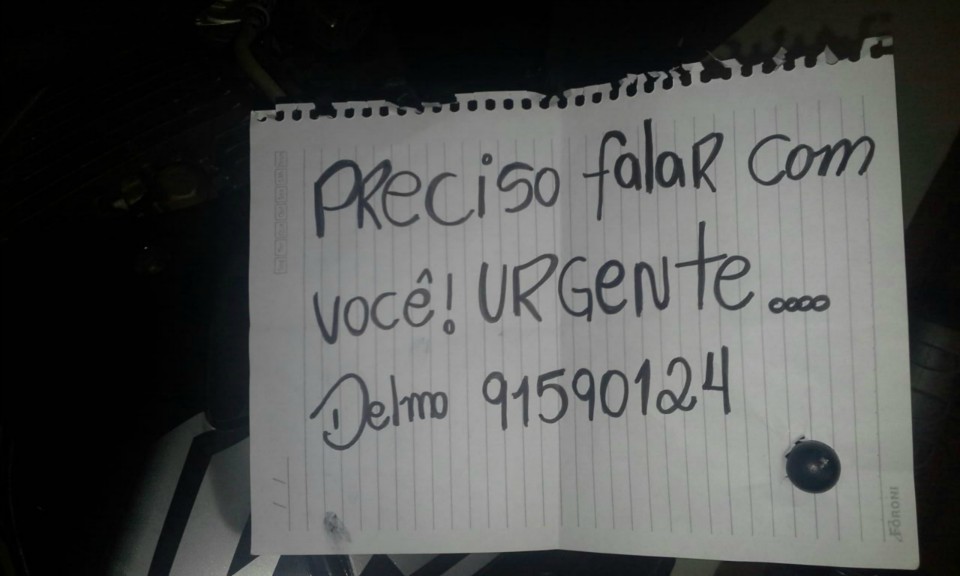 PRECISO falaR com
você! URGENTE....
Delmo 91590124
FORONI